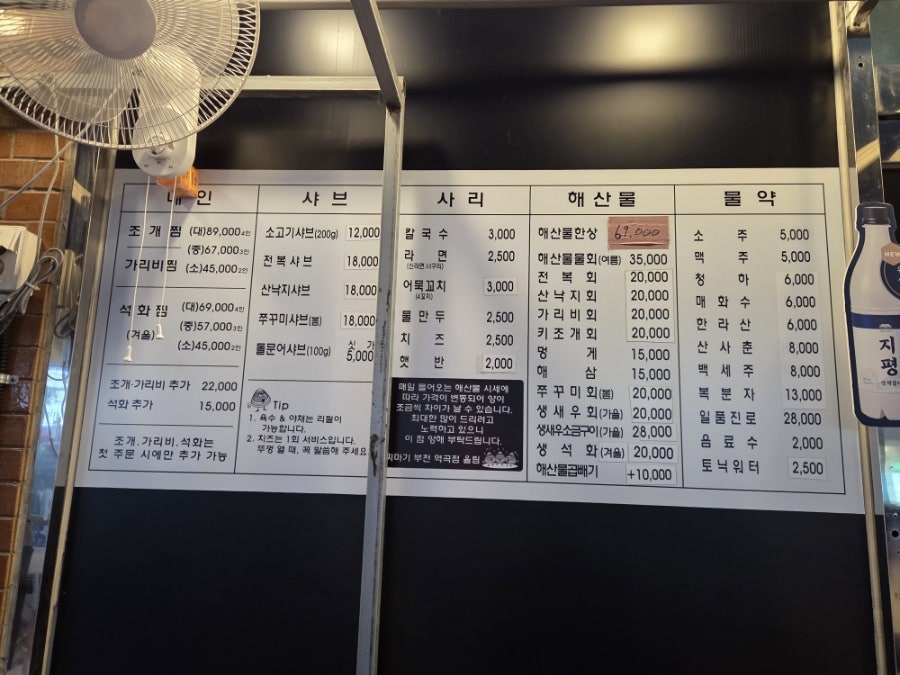 메인
조개찜 (대)89,000 4인
(중)67,000 3인
가리비찜 (소)45,000 2인
석화찜 (대)69,000 4인
(겨울) (중)57,000 3인
(소)45,000 2인
조개·가리비 추가 22,000
석화 추가 15,000
조개, 가리비, 석화는
첫 주문 시에만 추가 가능
샤브
소고기샤브(200g) 12,000
전복샤브 18,000
산낙지샤브 18,000
쭈꾸미샤브(봄) 18,000
돌문어샤브(100g) 싯가 5,000
Tip
1. 육수 & 야채는 리필이
가능합니다.
2. 치즈는 1회 서비스입니다.
뚜껑 열 때, 꼭 말씀해 주세요
사리
칼국수 3,000
라면 2,500
(신라면,너구리)
어묵꼬치 3,000
(4꼬치)
물만두 2,500
치즈 2,500
햇반 2,000
매일 들어오는 해산물 시세에
따라 가격이 변동되어 양이
조금씩 차이가 날 수 있습니다.
최대한 많이 드리려고
노력하고 있으니
이 점 양해 부탁드립니다.
찌마기 부천 역곡점 올림
해산물
해산물한상 62,000
해산물물회(여름) 35,000
전복회 20,000
산낙지회 20,000
가리비회 20,000
키조개회 20,000
멍게 15,000
해삼 15,000
쭈꾸미회(봄) 20,000
생새우회(가을) 20,000
생새우소금구이(가을) 28,000
생석화(겨울) 20,000
해산물곱빼기 +10,000
물약
소주 5,000
맥주 5,000
청하 6,000
매화수 6,000
한라산 6,000
산사춘 8,000
백세주 8,000
복분자 13,000
일품진로 28,000
음료수 2,000
토닉워터 2,500
NEW
지평